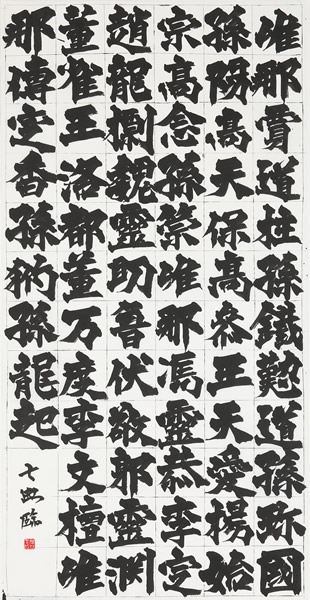 唯那賈道柱孫鐵懃道孫弥國
孫陽高天保高参王天愛楊始
宗高念孫榮唯那馮靈恭李定
趙龍魏靈助普伏敬郭靈渕
董雀王洛都董万度李文檀唯
那傅定香孫豹孫龍起
臨